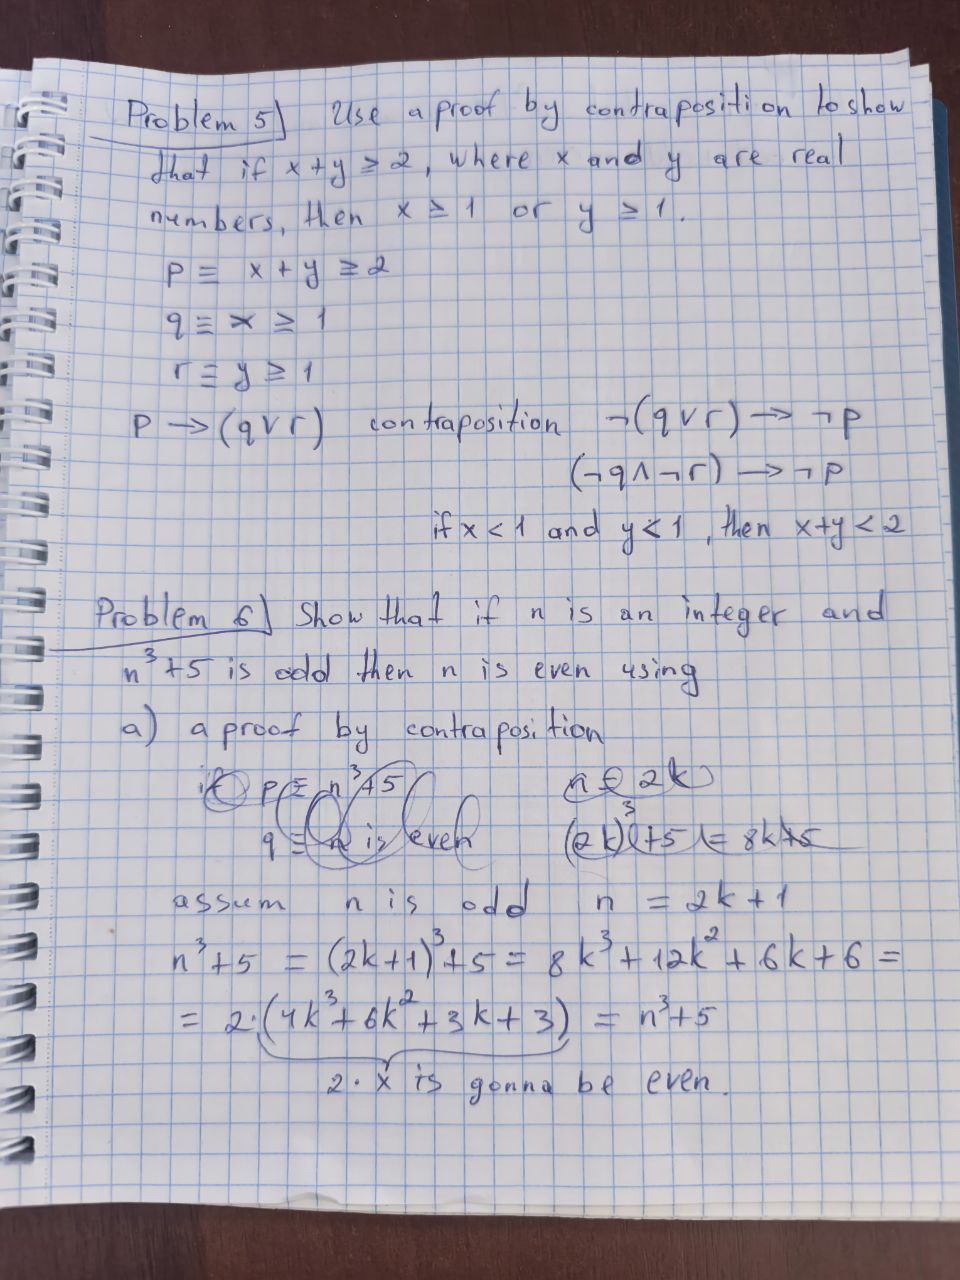 Problem 5) Use a proof by contraposition to show
that if x + y ≥ 2, where x and y are real
numbers, then x ≥ 1 or y ≥ 1.
p ≡ x + y ≥ 2
q ≡ x ≥ 1
r ≡ y ≥ 1
p → (q ∨ r) contraposition ¬(q ∨ r) → ¬p
(¬q ∧ ¬r) → ¬p
if x < 1 and y < 1, then x+y < 2
Problem 6) Show that if n is an integer and
n³+5 is odd then n is even using
a) a proof by contraposition
if p ≡ n³+5 n = 2k
q ≡ n is even (2k)³+5 = 8k+5
assum n is odd n = 2k+1
n³+5 = (2k+1)³+5 = 8k³+12k²+6k+6 =
= 2·(4k³+6k²+3k+3) = n³+5
2·x is gonna be even.